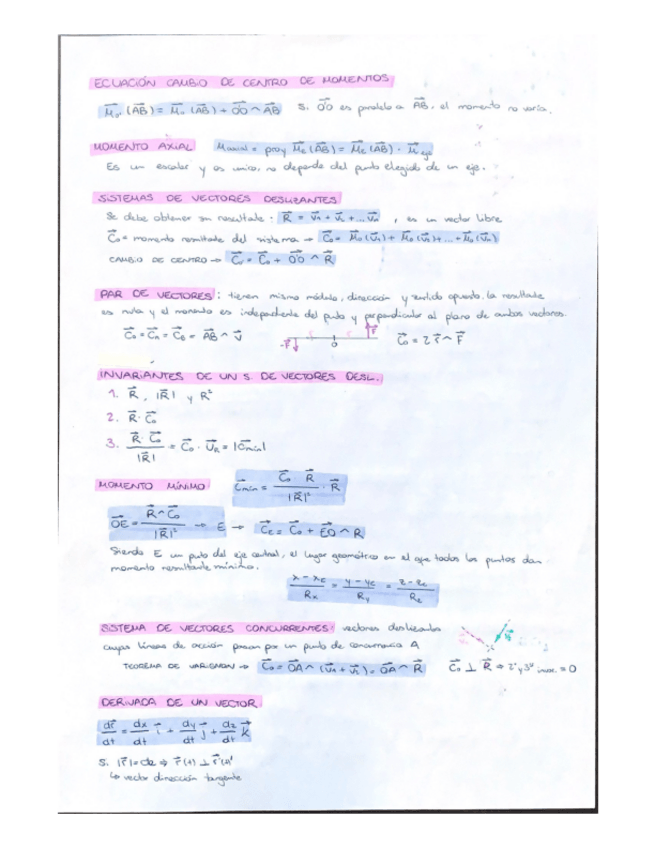 ECUACIÓN CAMBIO DE CENTRO DE MOMENTOS
M⃗o'(AB⃗) = M⃗o(AB⃗) + O'O⃗ ^ AB⃗ Si O'O⃗ es paralelo a AB⃗, el momento no varía.
MOMENTO AXIAL Maxial = proy M⃗E(AB⃗) = M⃗E(AB⃗) · μ⃗eje
Es un escalar y es unico, no depende del punto elegido de un eje.
SISTEMAS DE VECTORES DESLIZANTES
Se debe obtener su resultate: R⃗ = V⃗1 + V⃗2 + ... V⃗n , es un vector libre
C⃗o = momento resultate del sistema → C⃗o = M⃗o(V⃗1) + M⃗o(V⃗2) + ... + M⃗o(V⃗n)
CAMBIO DE CENTRO → C⃗o' = C⃗o + O'O⃗ ^ R⃗
PAR DE VECTORES: tienen mismo módulo, dirección y sentido opuesto. la resultate
es nula y el momento es independiente del punto y perpendicular al plano de ambos vectores.
C⃗o = C⃗A = C⃗B = AB⃗ ^ V⃗ -F⃗ O F⃗ C⃗o = 2 r⃗ ^ F⃗
INVARIANTES DE UN S. DE VECTORES DESL.
1. R⃗, |R⃗| y R²
2. R⃗ · C⃗o
3. R⃗ · C⃗o / |R⃗| = C⃗o · U⃗R = |C⃗min|
MOMENTO MÍNIMO: C⃗min = C⃗o R⃗ / |R⃗|² · R⃗
OE⃗ = R⃗ ^ C⃗o / |R⃗|² → E → C⃗E = C⃗o + EO⃗ ^ R⃗
Siendo E un punto del eje central, el lugar geométrico en el que todos los puntos dan
momento resultante mínimo.
x - xE / Rx = y - yE / Ry = z - zE / Rz
SISTEMA DE VECTORES CONCURRENTES: vectores deslizantes
cuyas líneas de acción pasan por un punto de concurrencia A
TEOREMA DE VARIGNON → C⃗o = OA⃗ ^ (V⃗1 + V⃗2) = OA⃗ ^ R⃗ C⃗o ⊥ R⃗ ⇒ 2º y 3º invar. = 0
DERIVADA DE UN VECTOR
dr⃗/dt = dx/dt i⃗ + dy/dt j⃗ + dz/dt k⃗
Si |r⃗| = cte ⇒ r⃗(t) ⊥ r⃗(t)'
↳ vector dirección tangente